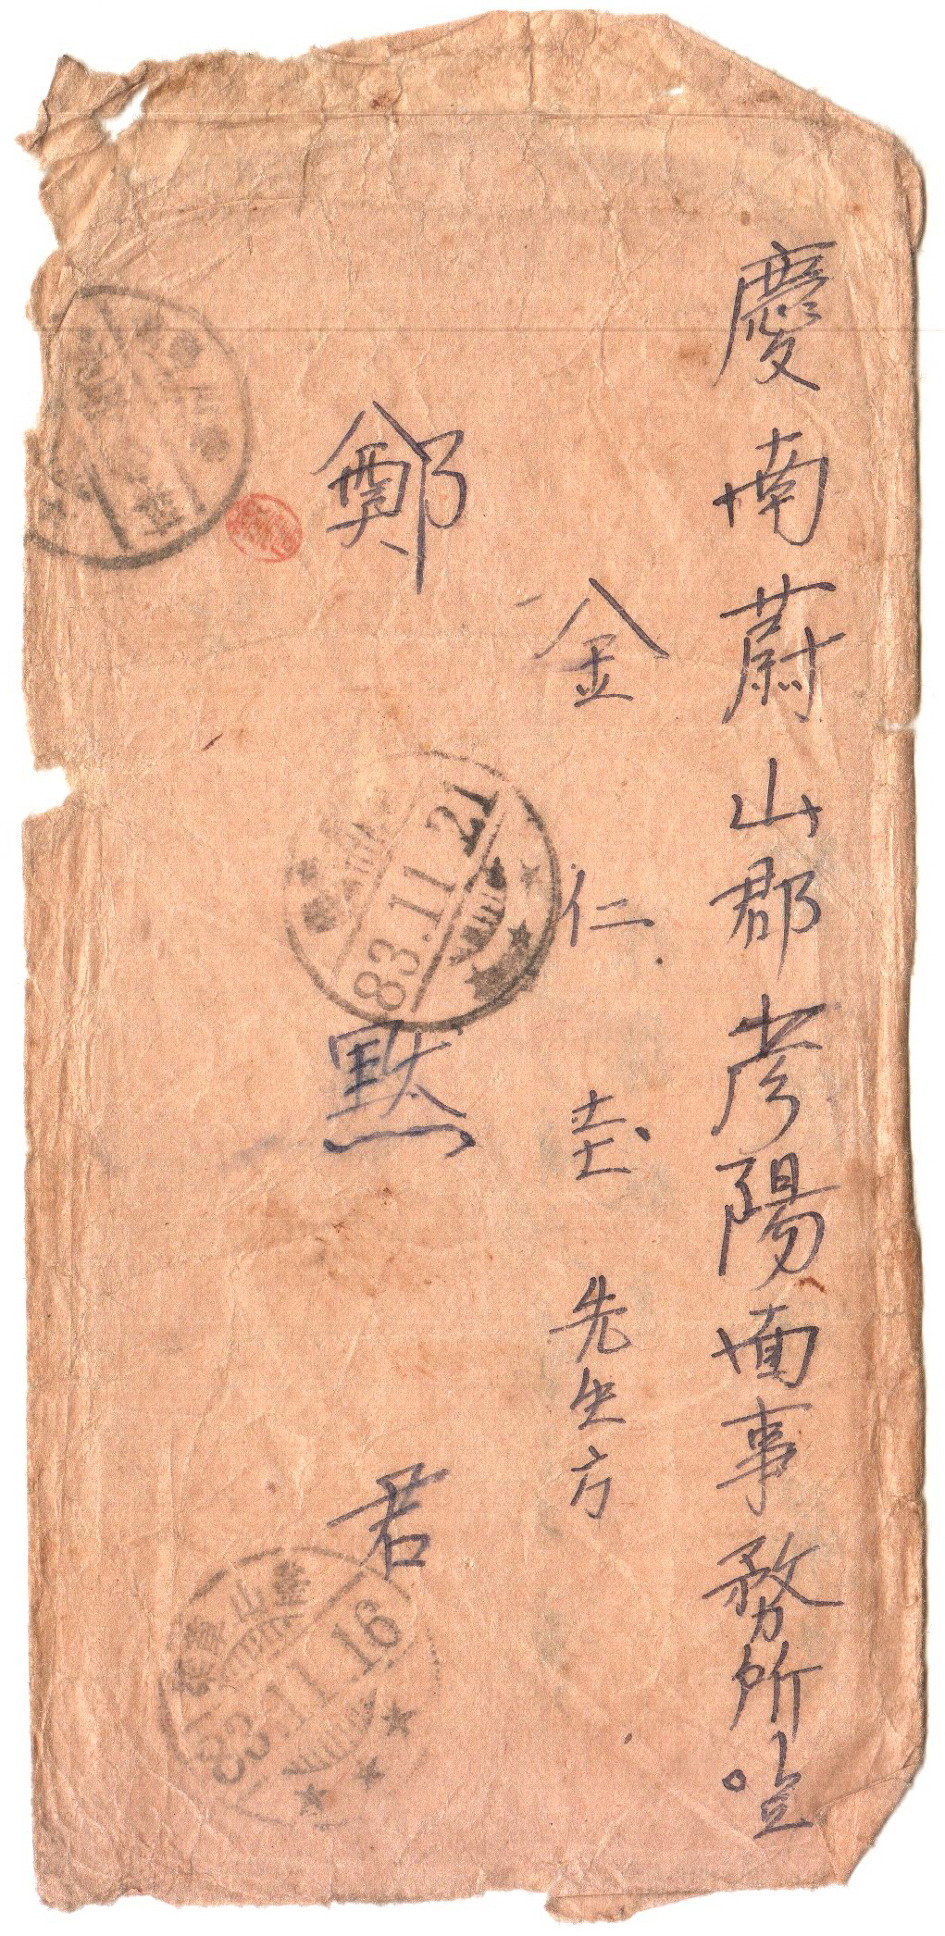 慶南蔚山郡彦陽面事務所앞
金仁圭先生方
鄭黙君
83.11.21
83.11.16